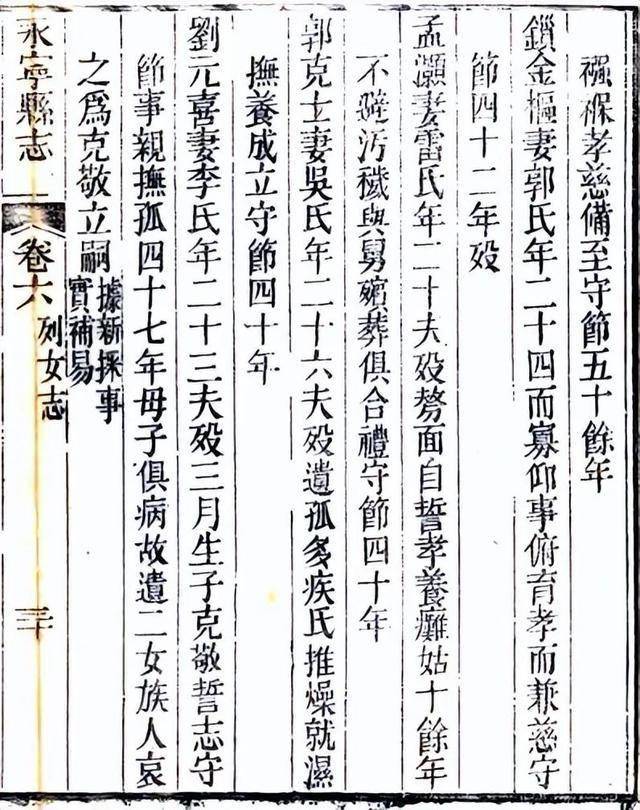 襁褓孝慈備至守節五十餘年
鎖金樞妻郭氏年二十四而寡仰事俯育孝而兼慈守
節四十二年歿
孟灝妻雷氏年二十夫歿剺面自誓孝養癱姑十餘年
不避汚穢與舅殯葬俱合禮守節四十年
郭克士妻吳氏年二十六夫歿遺孤多疾氏推燥就濕
撫養成立守節四十年
劉元喜妻李氏年二十三夫歿三月生子克敬誓志守
節事親撫孤四十七年母子俱病故遺二女族人哀
之爲克敬立嗣
據新採事
實補易
永寧縣志
卷六
列女志
三十